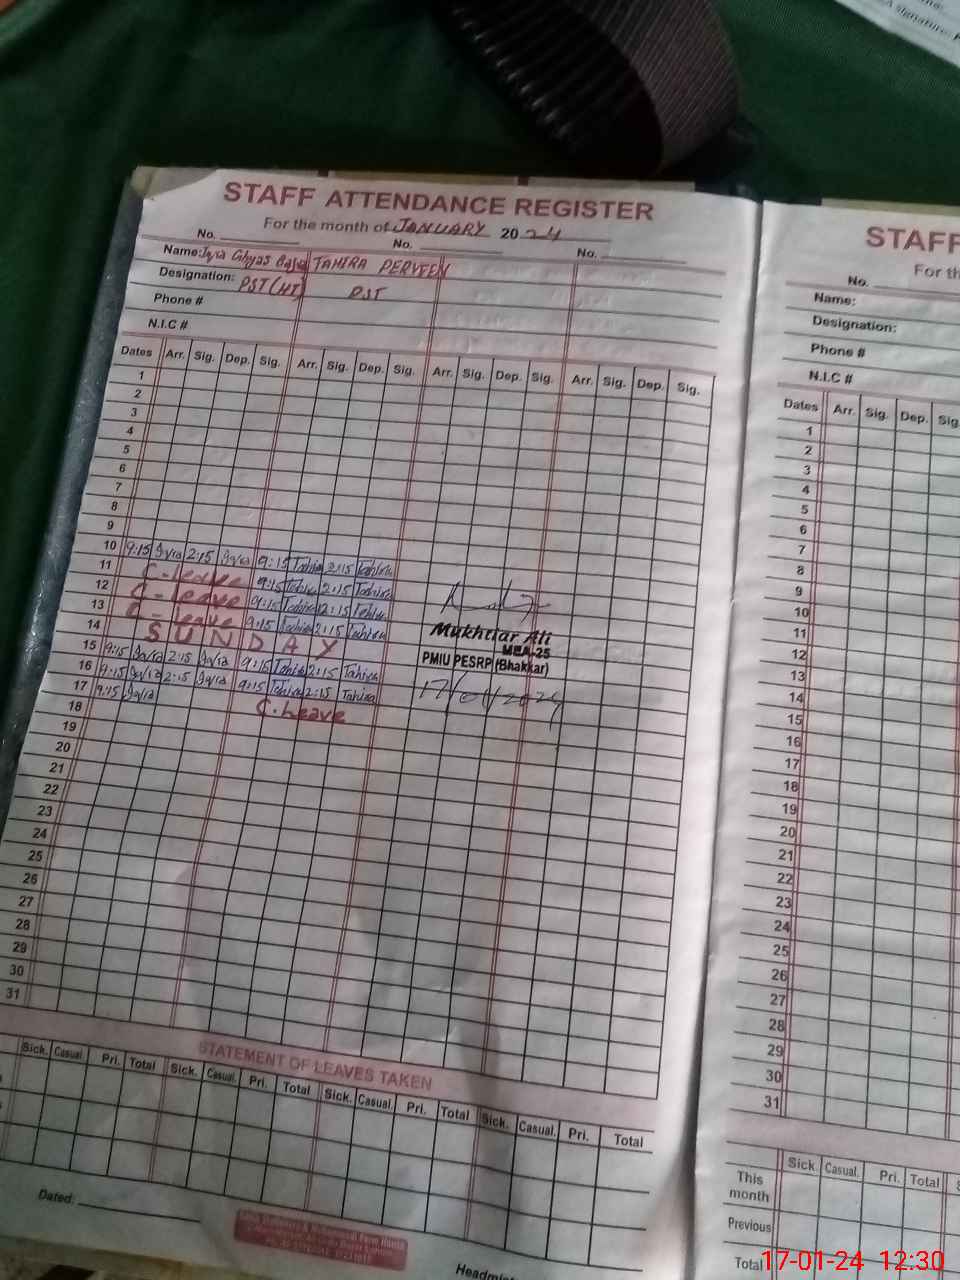 STAFF ATTENDANCE REGISTER
For the month of JANUARY 2024
No. No. No.
Name: TAHIRA PERVEEN
Designation: PST (HT) PST
Phone #
N.I.C #
Dates Arr. Sig. Dep. Sig. Arr. Sig. Dep. Sig. Arr. Sig. Dep. Sig. Arr. Sig. Dep. Sig.
1
2
3
4
5
6
7
8
9
10 9:15 2:15 9:15 Tahira 2:15 Tahira
11 C-leave 9:15 Tahira 2:15 Tahira
12 C-leave 9:15 Tahira 2:15 Tahira
13 C-leave 9:15 Tahira 2:15 Tahira
14 SUNDAY
15 9:15 2:15 9:15 Tahira 2:15 Tahira
16 9:15 2:15 9:15 Tahira 2:15 Tahira
17 9:15 C.Leave
18
19
20
21
22
23
24
25
26
27
28
29
30
31
Mukhtiar Ali
MEA-25
PMIU PESRP (Bhakkar)
17/01/2024
STATEMENT OF LEAVES TAKEN
Sick. Casual. Pri. Total Sick. Casual. Pri. Total Sick. Casual. Pri. Total Sick. Casual. Pri. Total
Dated:
STAFF
No.
Name:
Designation:
Phone #
N.I.C #
Dates Arr. Sig. Dep. Sig.
1
2
3
4
5
6
7
8
9
10
11
12
13
14
15
16
17
18
19
20
21
22
23
24
25
26
27
28
29
30
31
Sick. Casual. Pri. Total
This month
Previous
Total
17-01-24 12:30